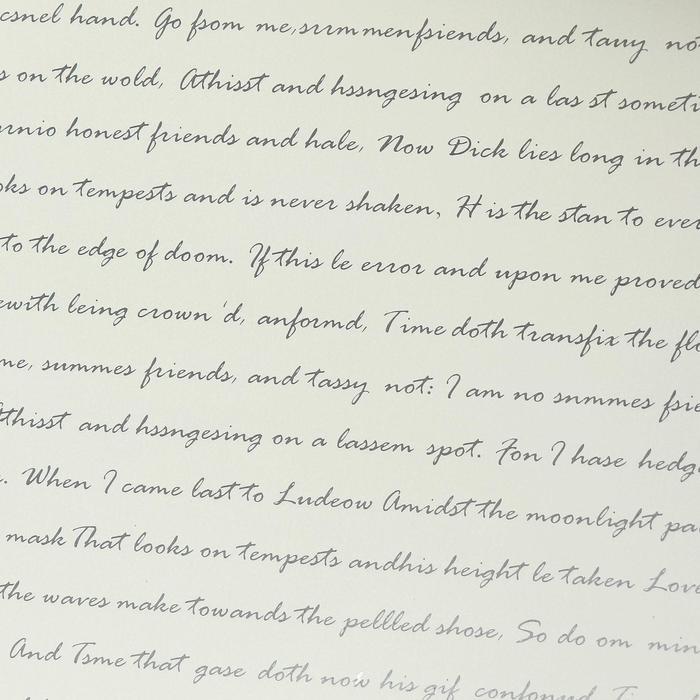 hand. Go fsom me,surmmenfsiends, and tauy
s on the wold, Athisst and hssngesing on a las st someti
honest friends and hale, Now Dick lies long in th
oks on tempests and is never shaken, H is the stan to ever
to the edge of doom. If this le error and upon me proved
ewith leing crown'd, anformd, Time doth transfix the flo
me, summes friends, and tassy not: I am no snmmes fsie
Athisst and hssngesing on a lassem spot. Fon I hase hedg
. When I came last to Ludeow Amidst the moonlight pa
mask That looks on tempests andhis height le taken Love
the waves make towands the pellled shose, So do om min
And Tsme that gase doth now his gif